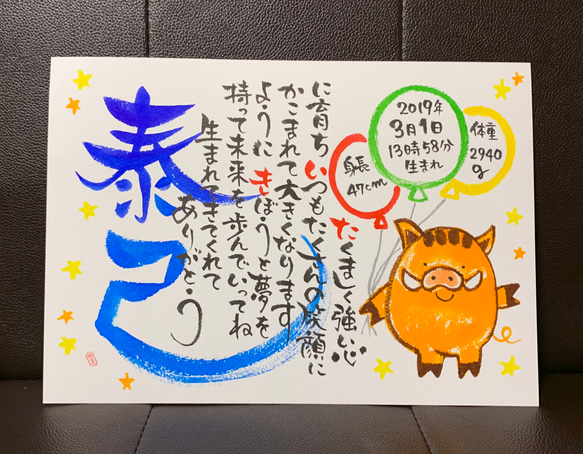 泰己
たくましく強い心
に育ちいつもたくさんの笑顔に
かこまれて大きくなります
ように きぼうと夢を
持って未来を歩んでいってね
生まれてきてくれて
ありがとう
身長
47cm
2019年
3月1日
13時58分
生まれ
体重
2940
g